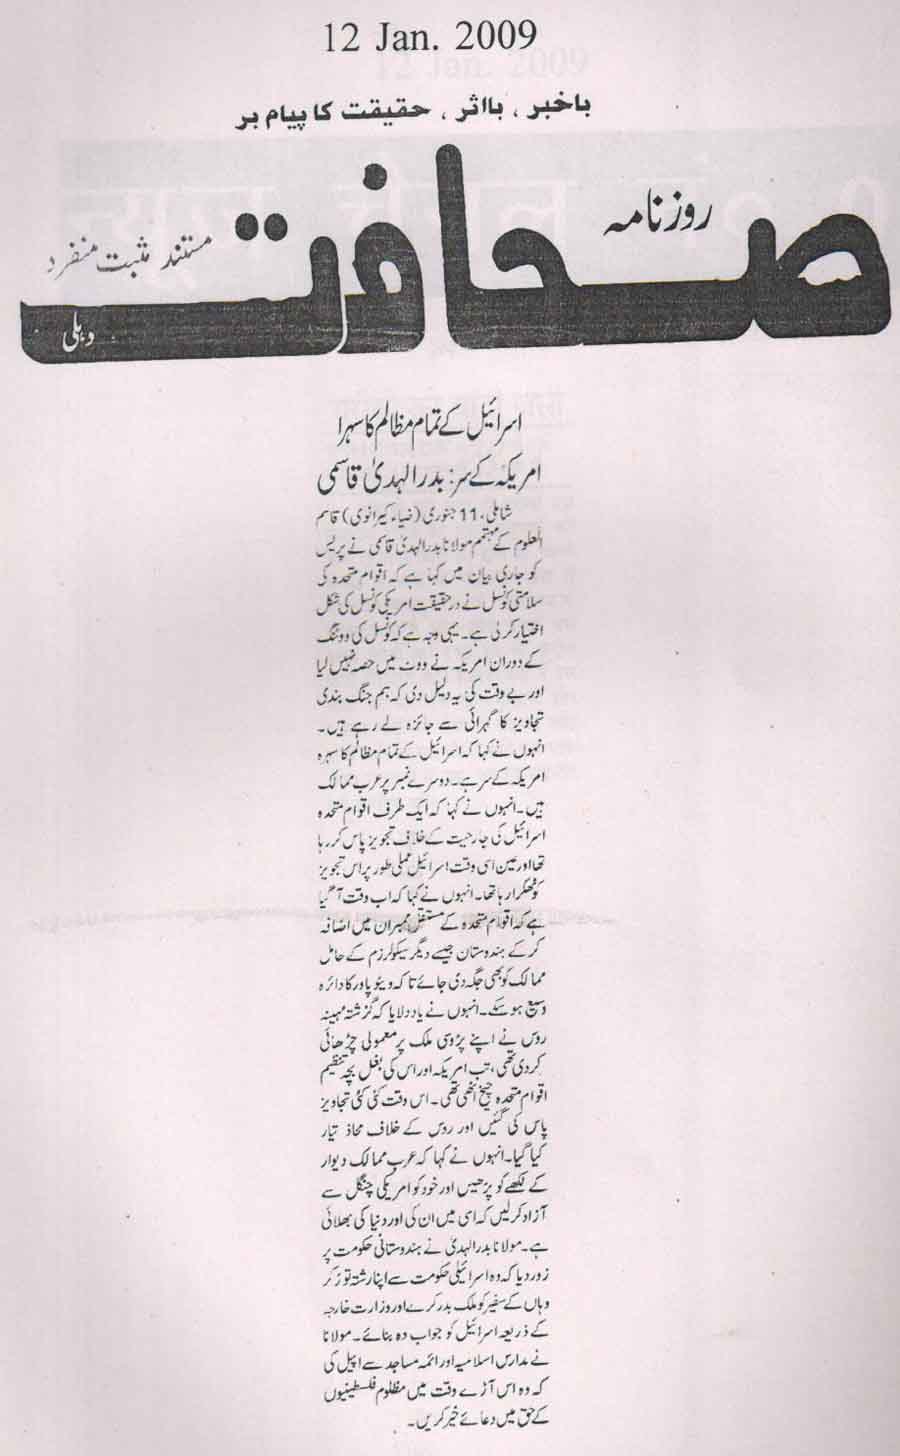 12 Jan. 2009
باخبر، بااثر، حقیقت کا پیام بر
روزنامہ
صحافت
مستند مثبت منفرد
دہلی
اسرائیل کے تمام مظالم کا سہرا
امریکہ کے سر: بدر الہدیٰ قاسمی
شاملی، 11 جنوری (ضیاء کیرانوی) قاسم
العلوم کے مہتمم مولانا بدر الہدیٰ قاسمی نے پریس
کو جاری بیان میں کہا ہے کہ اقوام متحدہ کی
سلامتی کونسل نے درحقیقت امریکی کونسل کی شکل
اختیار کر لی ہے۔ یہی وجہ ہے کہ کونسل کی ووٹنگ
کے دوران امریکہ نے ووٹ میں حصہ نہیں لیا
اور بے وقت کی یہ دلیل دی کہ ہم جنگ بندی
تجاویز کا گہرائی سے جائزہ لے رہے ہیں۔
انہوں نے کہا کہ اسرائیل کے تمام مظالم کا سہرہ
امریکہ کے سر ہے۔ دوسرے نمبر پر عرب ممالک
ہیں۔ انہوں نے کہا کہ ایک طرف اقوام متحدہ
اسرائیل کی جارحیت کے خلاف تجویز پاس کر رہا
تھا اور عین اسی وقت اسرائیل عملی طور پر اس تجویز
کو ٹھکرا رہا تھا۔ انہوں نے کہا کہ اب وقت آ گیا
ہے کہ اقوام متحدہ کے مستقل ممبران میں اضافہ
کر کے ہندوستان جیسے دیگر سیکولرزم کے حامل
ممالک کو بھی جگہ دی جائے تاکہ ویٹو پاور کا دائرہ
وسیع ہو سکے۔ انہوں نے یاد دلایا کہ گزشتہ مہینہ
روس نے اپنے پڑوسی ملک پر معمولی چڑھائی
کر دی تھی، تب امریکہ اور اس کی بغل بچہ تنظیم
اقوام متحدہ چیخ اٹھی تھی۔ اس وقت کئی کئی تجاویز
پاس کی گئیں اور روس کے خلاف محاذ تیار
کیا گیا۔ انہوں نے کہا کہ عرب ممالک دیوار
کے لکھے کو پڑھیں اور خود کو امریکی چنگل سے
آزاد کر لیں کہ اسی میں ان کی اور دنیا کی بھلائی
ہے۔ مولانا بدر الہدیٰ نے ہندوستانی حکومت پر
زور دیا کہ وہ اسرائیلی حکومت سے اپنا رشتہ توڑ کر
وہاں کے سفیر کو ملک بدر کرے اور وزارت خارجہ
کے ذریعہ اسرائیل کو جواب دہ بنائے۔ مولانا
نے مدارس اسلامیہ اور ائمہ مساجد سے اپیل کی
کہ وہ اس آڑے وقت میں مظلوم فلسطینیوں
کے حق میں دعائے خیر کریں۔